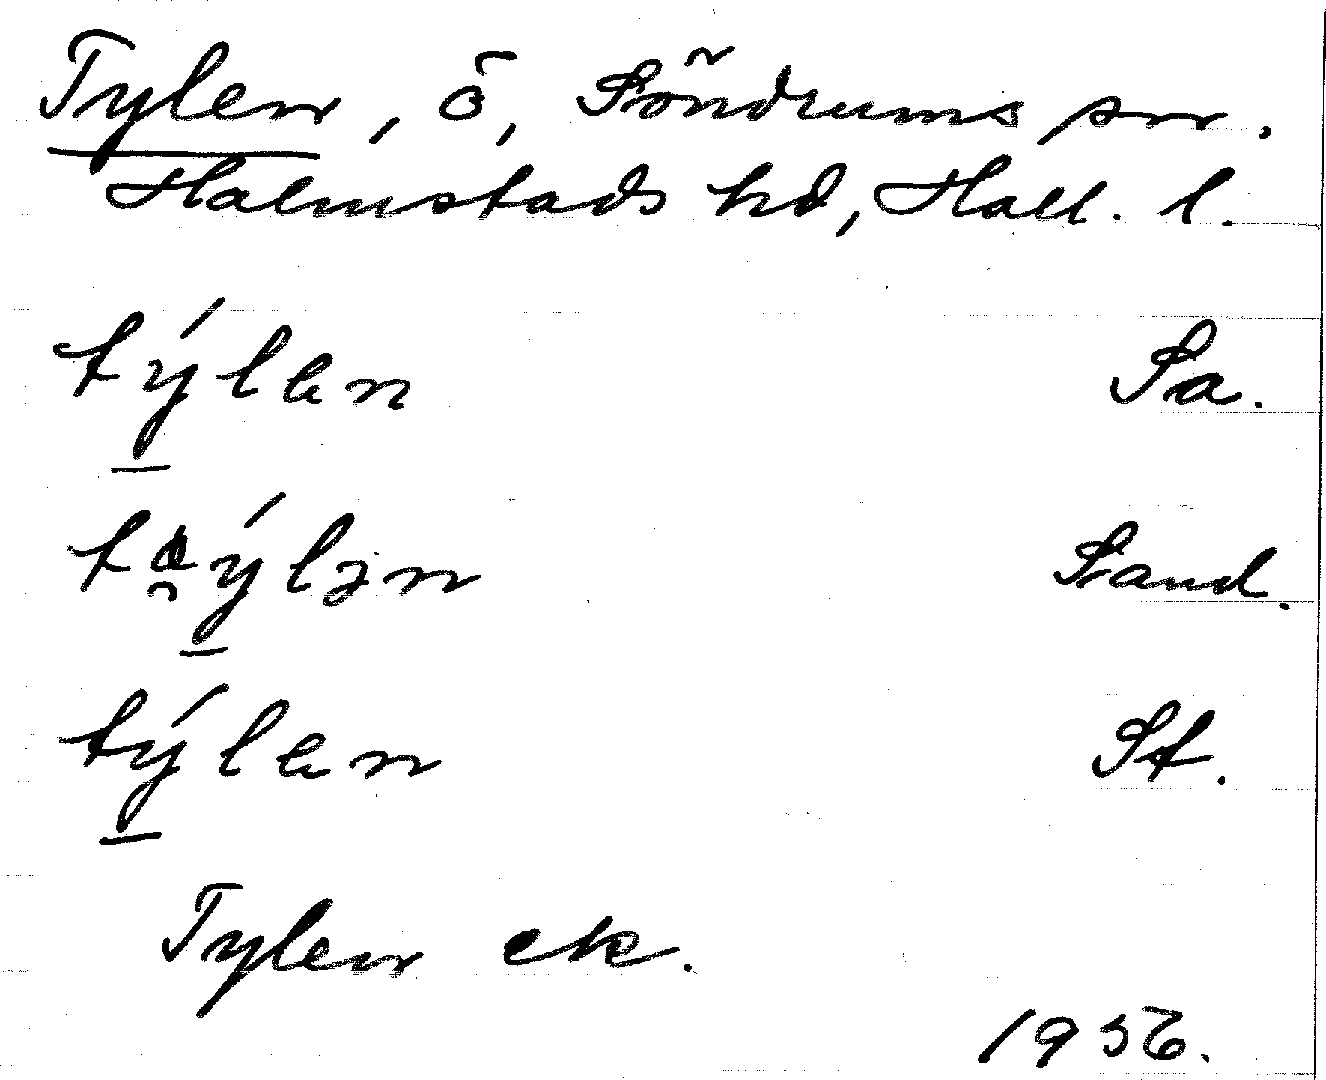 Tylen, ö, Söndrums sn.
Halmstads hd, Hall. l.
týlen Sa.
týlən Sand.
týlen St.
Tylen ek.
1956.